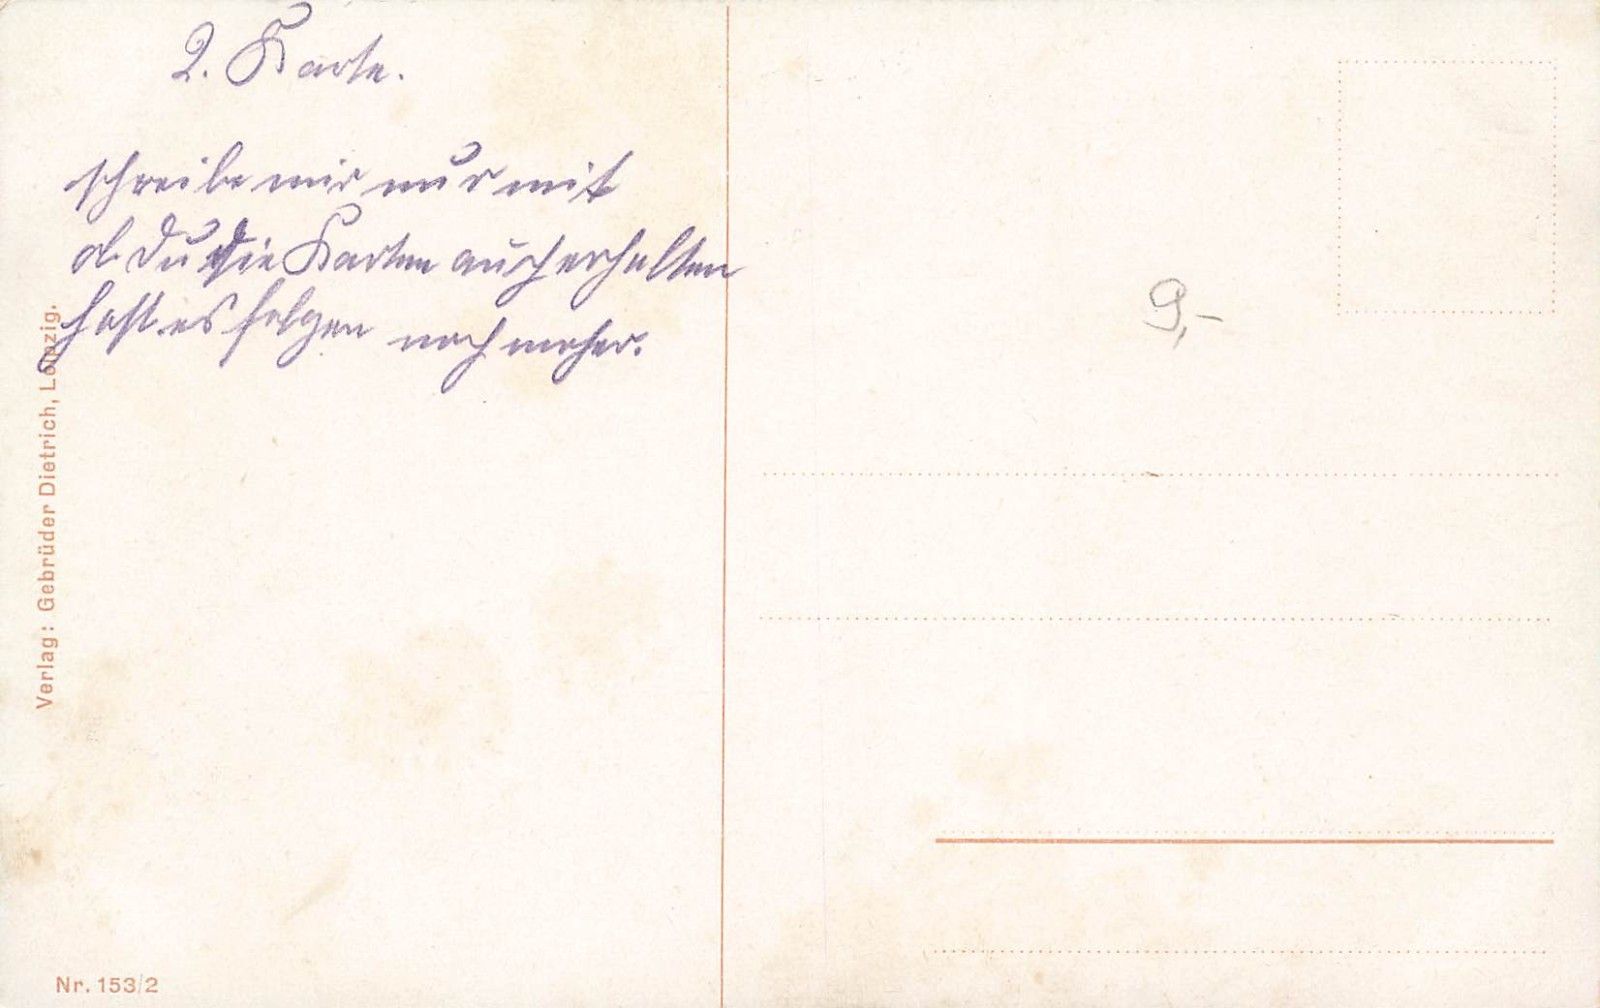 2. Karte.
schreibe mir nur mit
ob Du die Karten auch erhalten
hast es folgen noch meher.
9,-
Verlag: Gebrüder Dietrich, Leipzig.
Nr. 153/2